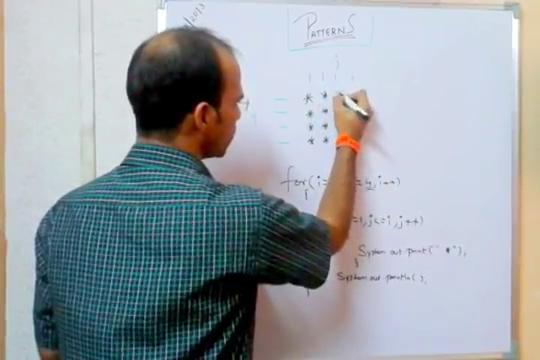 /2013
PATTERNS
j
* *
* *
* *
* *
for(i= =4,i++)
{
=1,j<=i,j++)
System out print(" *"),
}
System out println( ),
}